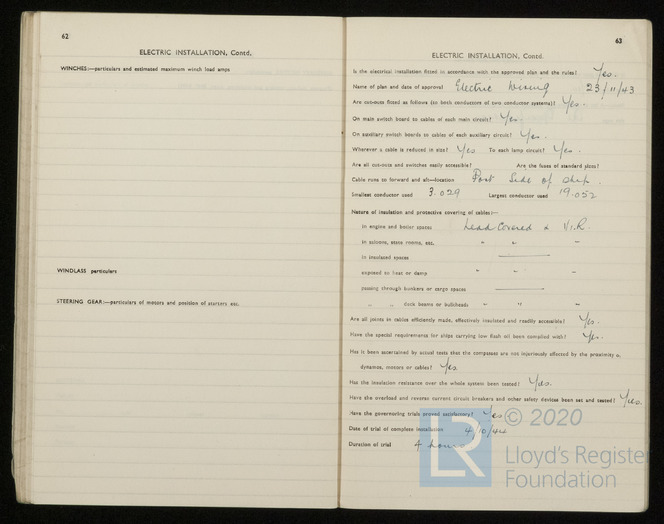 62
ELECTRIC INSTALLATION, Contd.
WINCHES:—particulars and estimated maximum winch load amps
WINDLASS particulars
STEERING GEAR:—particulars of motors and position of starters etc.
63
ELECTRIC INSTALLATION, Contd.
Is the electrical installation fitted in accordance with the approved plan and the rules? Yes.
Name of plan and date of approval Electric Wiring 23/11/43
Are cut-outs fitted as follows (to both conductors of two conductor systems)? Yes.
On main switch board to cables of each main circuit? Yes.
On auxiliary switch boards to cables of each auxiliary circuit? Yes.
Wherever a cable is reduced in size? Yes To each lamp circuit? Yes.
Are all cut-outs and switches easily accessible? Are the fuses of standard sizes?
Cable runs to forward and aft—location Port Side of Ship.
Smallest conductor used 3.029 Largest conductor used 19.052
Nature of insulation and protective covering of cables:—
in engine and boiler spaces Lead Covered & V.I.R.
in saloons, state rooms, etc. " " "
in insulated spaces —
exposed to heat or damp " " "
passing through bunkers or cargo spaces —
" " deck beams or bulkheads " " "
Are all joints in cables efficiently made, effectively insulated and readily accessible? Yes.
Have the special requirements for ships carrying low flash oil been complied with? Yes.
Has it been ascertained by actual tests that the compasses are not injuriously affected by the proximity o.
dynamos, motors or cables? Yes.
Has the insulation resistance over the whole system been tested? Yes.
Have the overload and reverse current circuit breakers and other safety devices been set and tested? Yes.
Have the governing trials proved satisfactory? Yes
Date of trial of complete installation 4/10/44
Duration of trial 4 hours
© 2020
LR
Lloyd's Register
Foundation